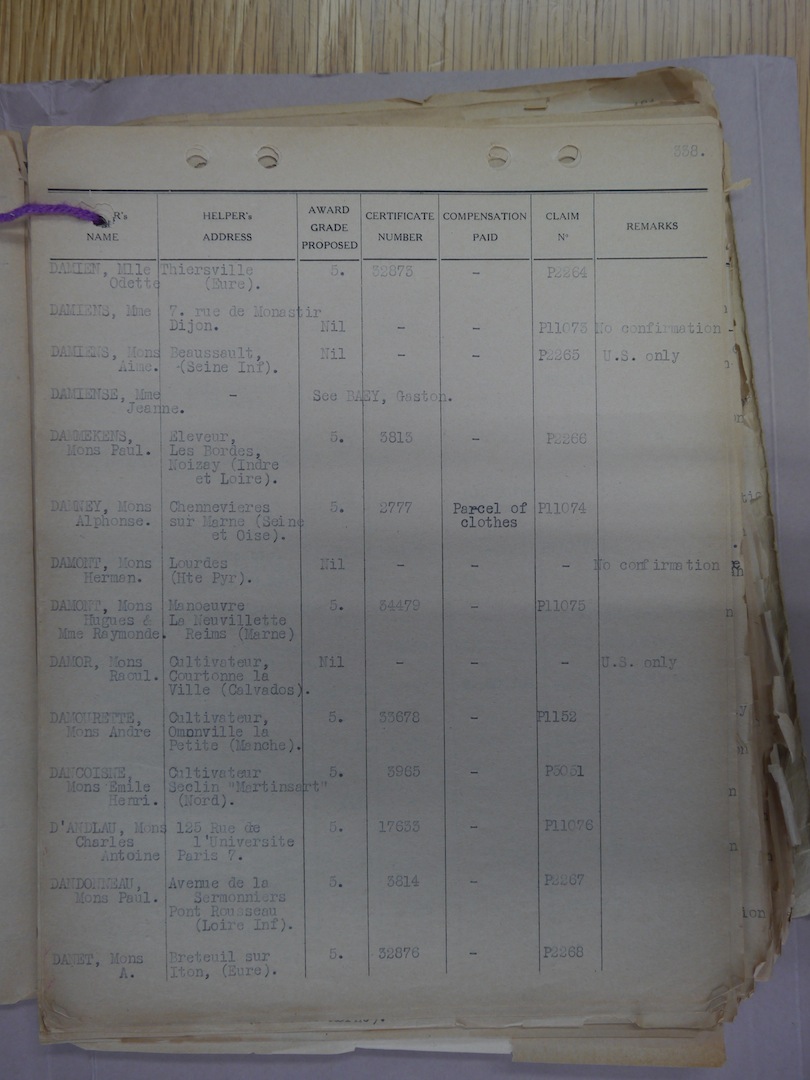 338.
R's NAME | HELPER's ADDRESS | AWARD GRADE PROPOSED | CERTIFICATE NUMBER | COMPENSATION PAID | CLAIM No | REMARKS
DAMIEN, Mlle Thiersville 5. 32873 - P2264
Odette (Eure).
DAMIENS, Mme 7. rue de Monastir
Dijon. Nil - - P11073 No confirmation -
DAMIENS, Mons Beaussault, Nil - - P2265 U.S. only
Aime. (Seine Inf).
DAMIENSE, Mme - See BAEY, Gaston.
Jeanne.
DAMMEKENS, Eleveur, 5. 3813 - P2266
Mons Paul. Les Bordes,
Noizay (Indre
et Loire).
DAMNEY, Mons Chennevieres 5. 2777 Parcel of P11074
Alphonse. sur Marne (Seine clothes
et Oise).
DAMONT, Mons Lourdes Nil - - - No confirmation
Herman. (Hte Pyr).
DAMONT, Mons Manoeuvre 5. 34479 - P11075
Hugues & La Neuvillette
Mme Raymonde. Reims (Marne)
DAMOR, Mons Cultivateur, Nil - - - U.S. only
Raoul. Courtonne la
Ville (Calvados).
DAMOURETTE, Cultivateur, 5. 33678 - P1152
Mons Andre Omonville la
Petite (Manche).
DANCOISNE, Cultivateur 5. 3965 - P3051
Mons Emile Seclin "Martinsart"
Henri. (Nord).
D'ANDLAU, Mons 125 Rue de 5. 17653 - P11076
Charles l'Universite
Antoine Paris 7.
DANDONNEAU, Avenue de la 5. 3814 - P2267
Mons Paul. Sermonniers
Pont Rousseau
(Loire Inf).
DANET, Mons Breteuil sur 5. 32876 - P2268
A. Iton, (Eure).